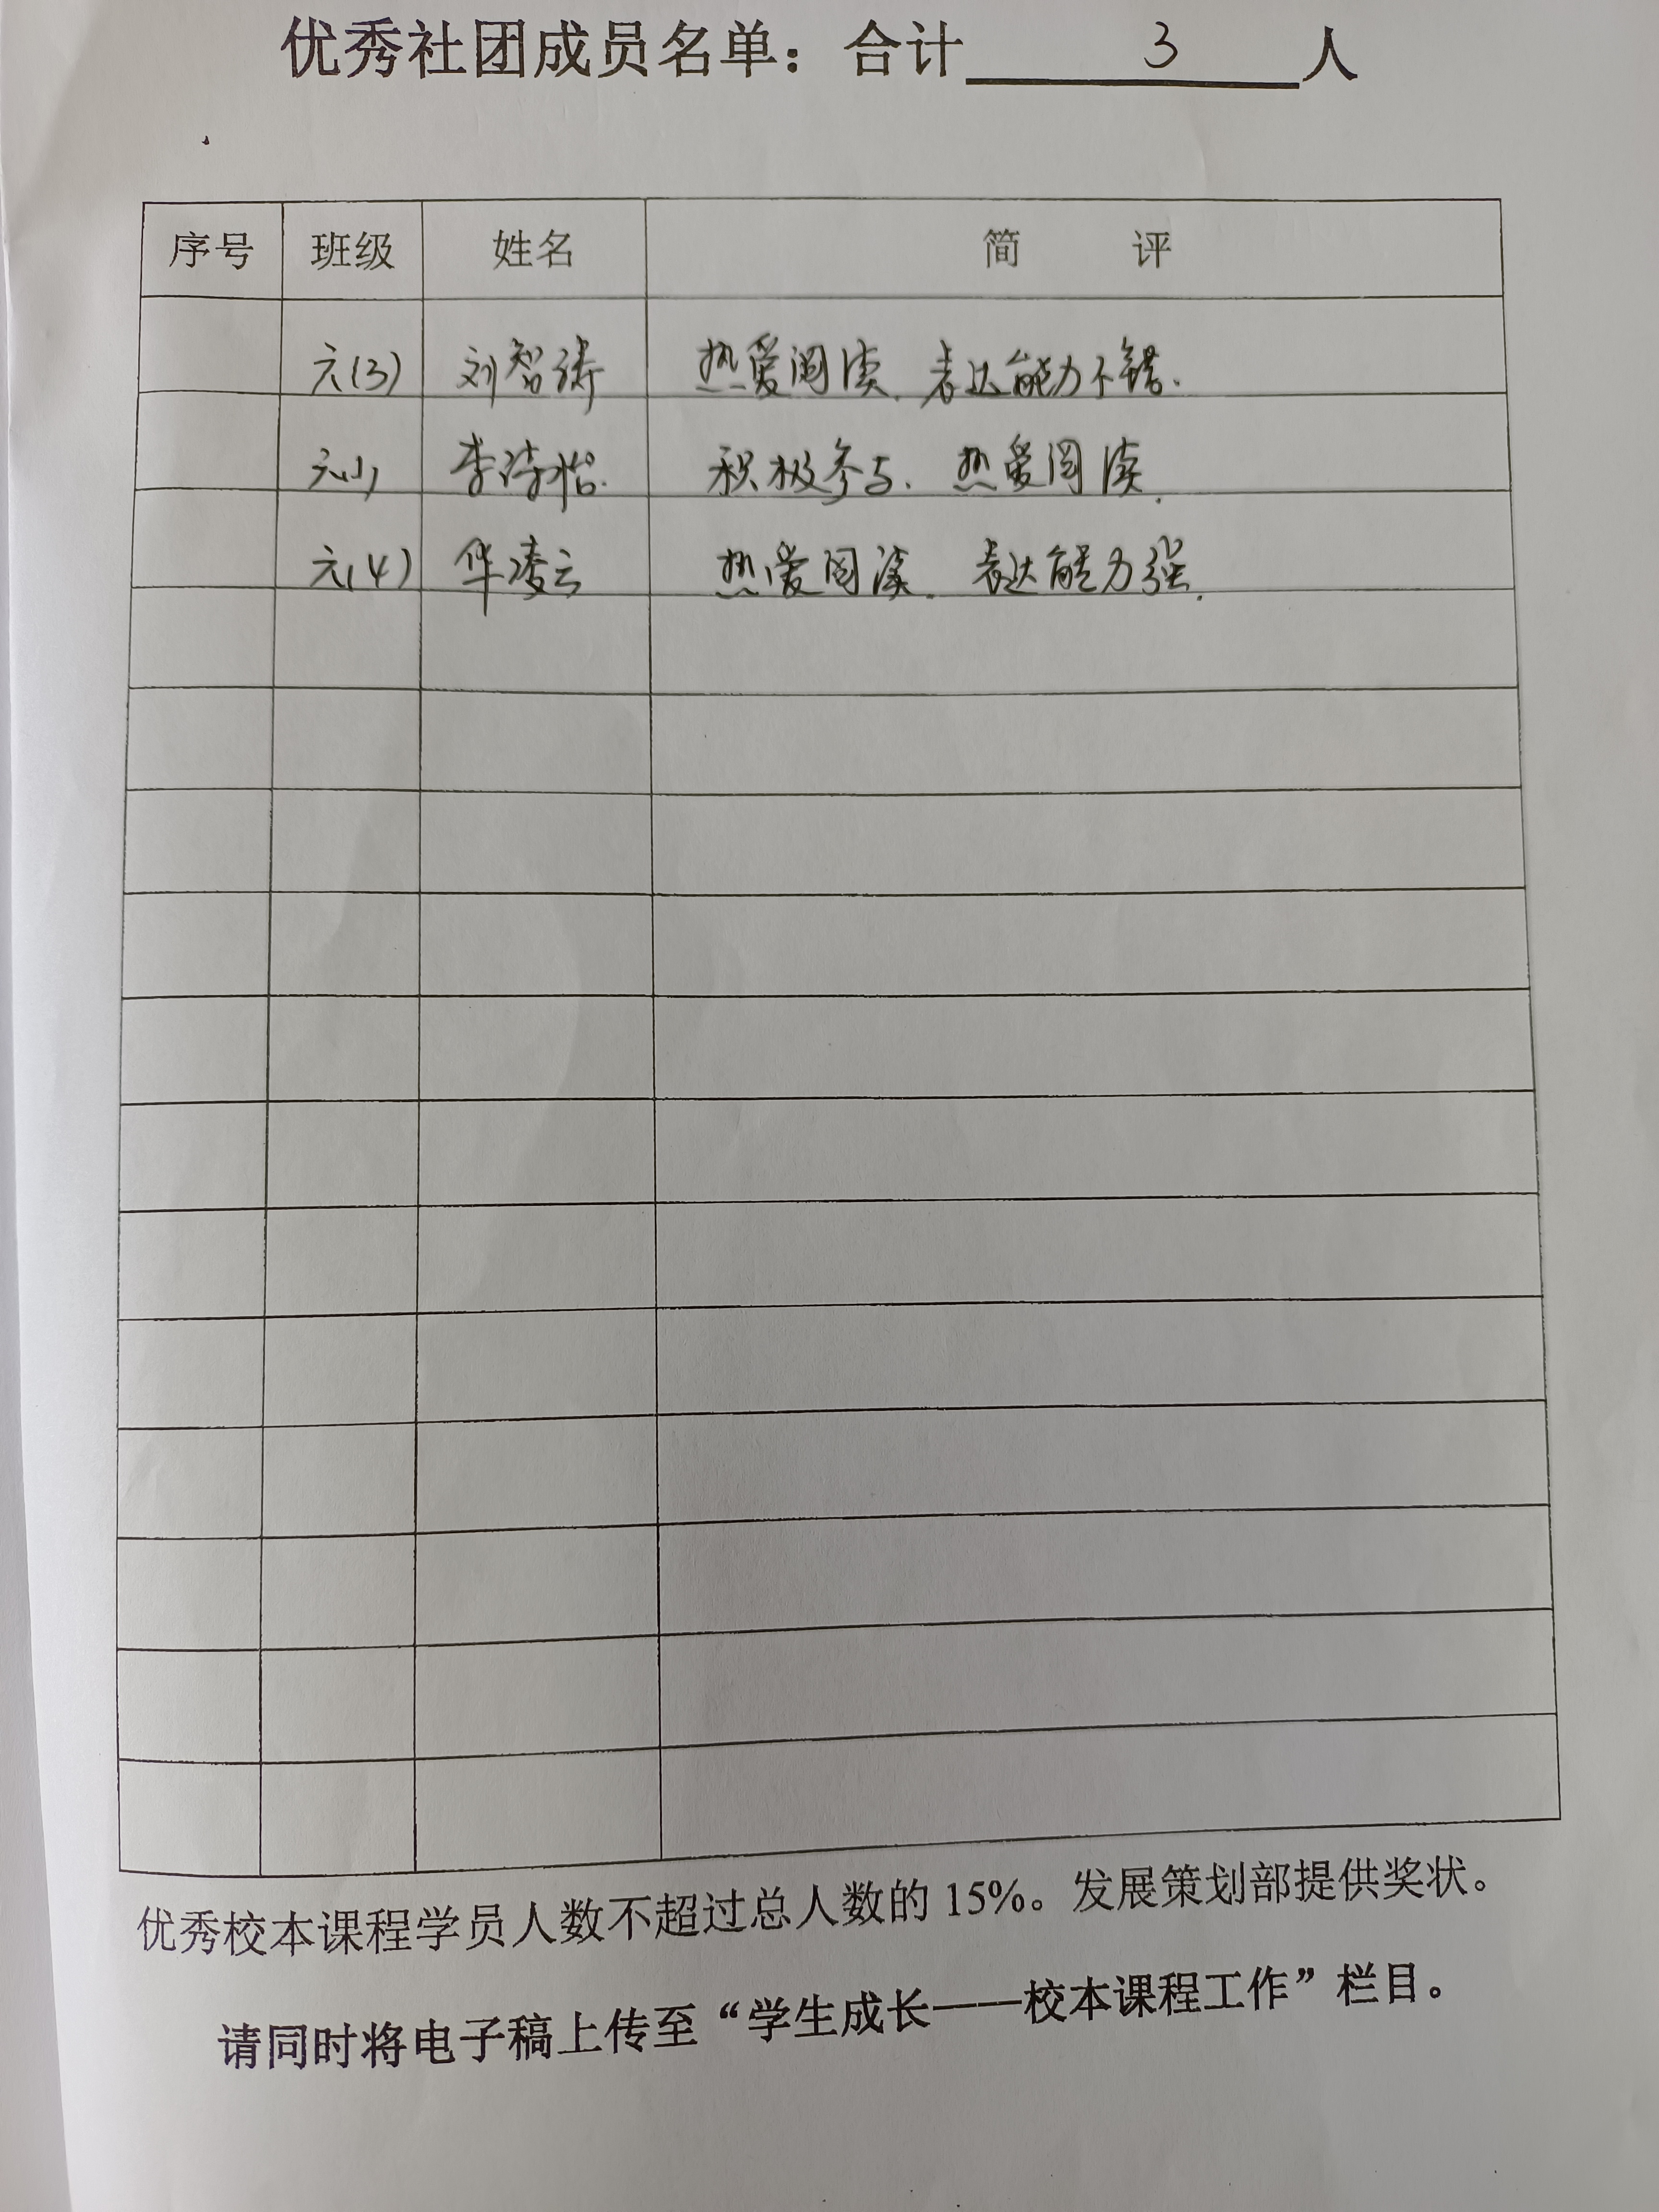 优秀社团成员名单：合计 3 人
序号 班级 姓名 简 评
六(3) 刘智涛 热爱阅读. 表达能力不错.
六(1) 李诗怡. 积极参与. 热爱阅读.
六(4) 华凌云 热爱阅读. 表达能力强.
优秀校本课程学员人数不超过总人数的 15%。发展策划部提供奖状。
请同时将电子稿上传至“学生成长——校本课程工作”栏目。